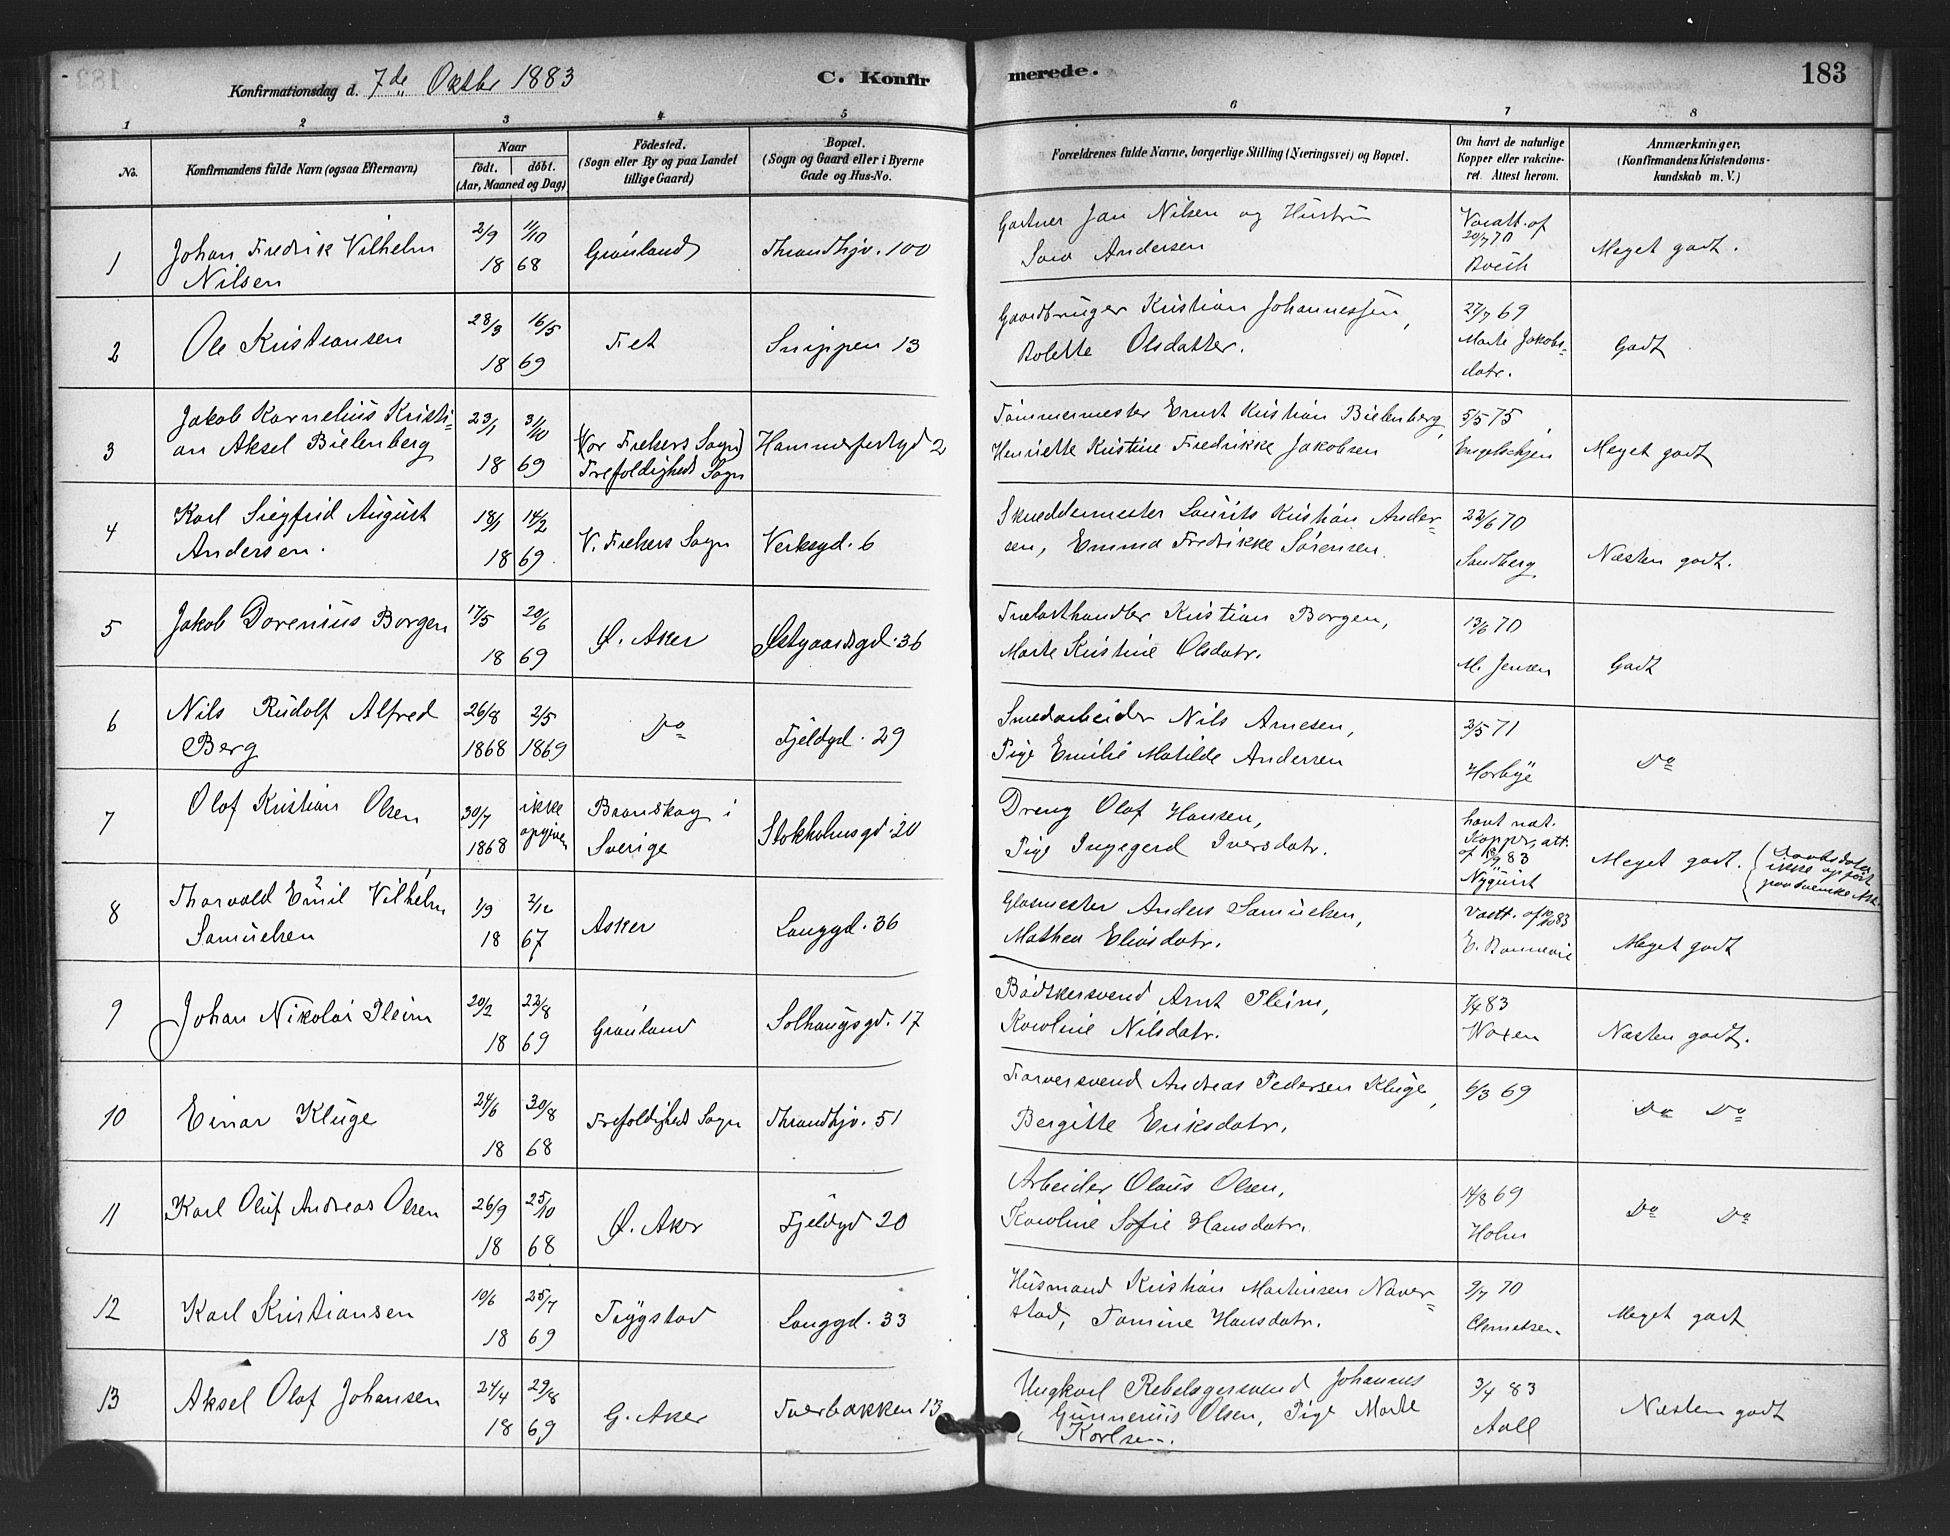 Konfirmationsdag d. 7de Oktbr 1883
C. Konfirmerede.
183
1 2 3 4 5 6 7 8
No.
Konfirmandens fulde Navn (ogsaa Efternavn)
Naar
født. døbt.
(Aar, Maaned og Dag)
Fødested.
(Sogn eller By og paa Landet
tillige Gaard)
Bopæl.
(Sogn og Gaard eller i Byerne
Gade og Hus-No.
Forældrenes fulde Navne, borgerlige Stilling (Næringsvei) og Bopæl.
Om havt de naturlige
Kopper eller vakcine-
ret. Attest herom.
Anmærkninger.
(Konfirmandens Kristendoms-
kundskab m. V.)
1
Johan Fredrik Vilhelm
Nilsen
2/9 11/10
18 68
Grønland
Throndhjv. 100
Gartner Jan Nilsen og Hustru
Andersen
Vacatt. af
20/7 70
Meget godt.
2
Ole Kristiansen
28/3 16/5
18 69
Fet
Snippen 13
Gaardbruger Kristian Johannessen,
Bolette Olsdatter.
27/7 69
Marte Jakobs-
datr.
Godt
3
Jakob Kornelius Kristi-
an Aksel Bielenberg
23/1 31/10
18 69
(Vor Frelsers Sogn)
Trefoldigheds Sogn
Hammerfestgd 2
Tømmermester Ernst Kristian Bielenberg,
Henriette Kristine Fredrikke Jakobsen
5/5 75
Engelschjøn
Meget godt
4
Karl Siegfrid August
Andersen.
18/1 14/2
18 69
V. Frelsers Sogn
Verksgd. 6
Skræddermester Laurits Kristian Ander-
sen, Emma Fredrikke Sørensen.
22/6 70
Sandberg
Næsten godt.
5
Jakob Dorenius Borgen
17/5 20/6
18 69
Ø. Aker
Østgaardsgd. 36
Trælasthandler Kristian Borgen,
Marte Kristine Olsdatr.
13/6 70
M. Jensen
Godt
6
Nils Rudolf Alfred
Berg
26/8 2/5
1868 1869
Do
Fjeldgd. 29
Smedarbeider Nils Arnesen,
Pige Emilie Matilde Andersen
3/5 71
Horbye
Do
7
Olof Kristian Olsen
30/7 ikke
1868 opgiven
Branskog i
Sverige
Stokholmsgd. 20
Dreng Olof Hansen,
Pige Ingegerd Iversdatr.
havt nat.
Kopper, att.
83
Nyquist
Meget godt.
(Daabsdatoen
ikke opført
paa svenske Att.
8
Thorvald Emil Vilhelm
2
Samuelsen
1/9 2/12
18 67
Asker
Langgd. 36
Glasmester Anders Samuelsen,
Mathea Eliasdatr.
Vaatt. af 10/10 83
E. Bonnevie
Meget godt
9
Johan Nikolai Pleim
20/2 22/8
18 69
Grønland
Solhaugsgd. 17
Bødkersvend Arnt Pleim,
Karoline Nilsdatr.
1/4 83
Woxen
Næsten godt.
10
Einar Kluge
24/6 30/8
18 68
Trefoldigheds Sogn
Throndhjv. 51
Farversvend Andreas Pedersen Kluge,
Bergitte Eriksdatr.
6/3 69
Do Do
11
Karl Oluf Andreas Olsen
26/9 25/10
18 68
Ø. Aker
Fjeldgd 20
Arbeider Olaus Olsen,
Karoline Sofie Hansdatr.
14/8 69
Holm
Do Do
12
Karl Kristiansen
10/6 25/7
18 69
Trygstad
Langgd. 33
Husmand Kristian Martinsen Naver-
stad, Tomine Hansdatr.
2/7 70
Clemetsen.
Meget godt
13
Aksel Olof Johansen
24/4 29/8
18 69
G. Aker
Tverbakken 13
Ungkarl Rebslagersvend Johannes
Gunnerius Olsen, Pige Marte
Karlsen.
3/4 83
Aall
Næsten godt